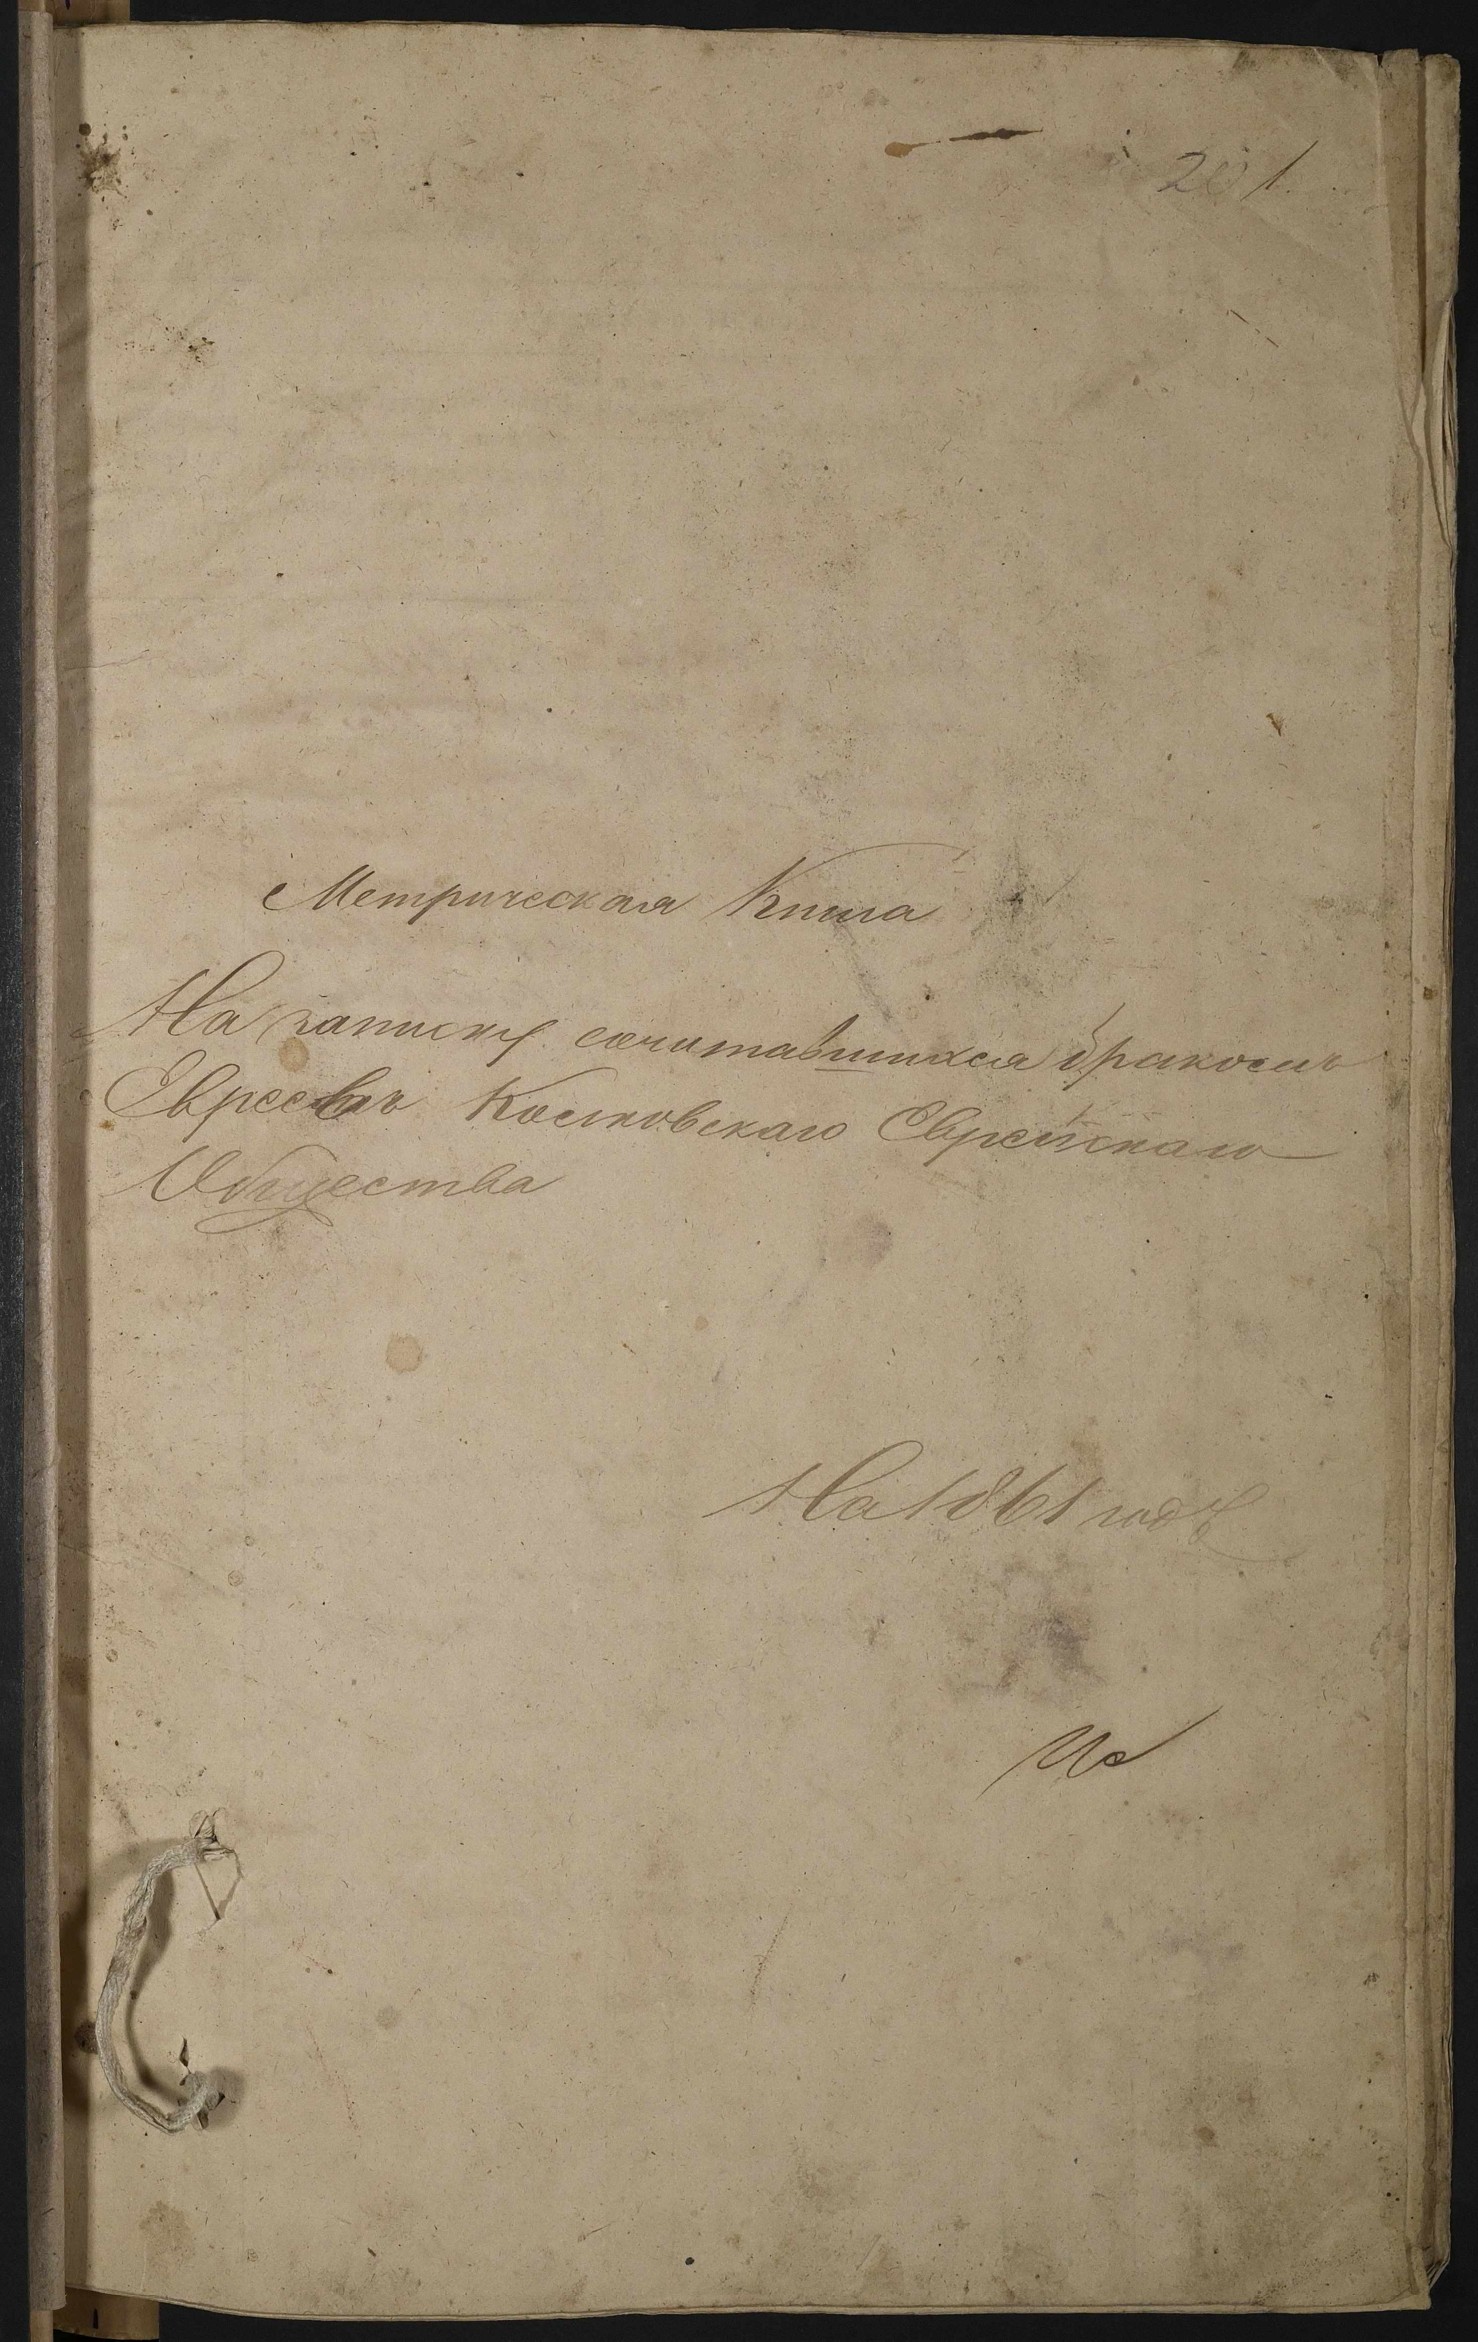 201.
Метрическая Книга
На записку сочитавшихся бракомъ
Евреевъ Косновскаго Еврейскаго
Общества
На 1861 годъ